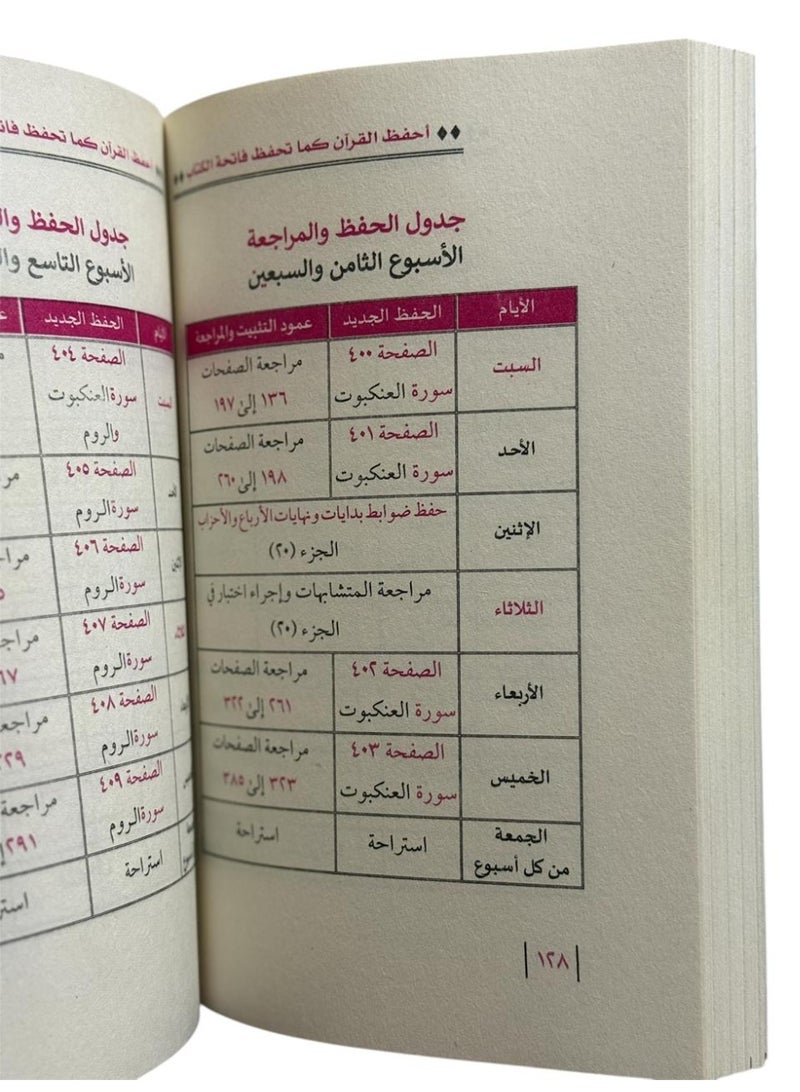 ♦♦ أحفظ القرآن كما تحفظ فاتحة الكتاب ♦♦
جدول الحفظ والمراجعة
الأسبوع الثامن والسبعين
الأيام الحفظ الجديد عمود التثبيت والمراجعة
السبت
الصفحة ٤٠٠
سورة العنكبوت
مراجعة الصفحات
١٣٦ إلى ١٩٧
الأحد
الصفحة ٤٠١
سورة العنكبوت
مراجعة الصفحات
١٩٨ إلى ٢٦٠
الإثنين
حفظ ضوابط بدايات ونهايات الأرباع والأحزاب
الجزء (٢٠)
الثلاثاء
مراجعة المتشابهات وإجراء اختبار في
الجزء (٢٠)
الأربعاء
الصفحة ٤٠٢
سورة العنكبوت
مراجعة الصفحات
٢٦١ إلى ٣٢٢
الخميس
الصفحة ٤٠٣
سورة العنكبوت
مراجعة الصفحات
٣٢٣ إلى ٣٨٥
الجمعة
من كل أسبوع
استراحة
استراحة
١٢٨
أحفظ القرآن كما تحفظ
جدول الحفظ
الأسبوع التاسع
الأيام الحفظ الجديد
السبت
الصفحة ٤٠٤
سورة العنكبوت
والروم
الصفحة ٤٠٥
سورة الروم
الصفحة ٤٠٦
سورة الروم
الصفحة ٤٠٧
سورة الروم
الصفحة ٤٠٨
سورة الروم
مراجعة
الصفحة ٤٠٩
سورة الروم
مراجعة
استراحة